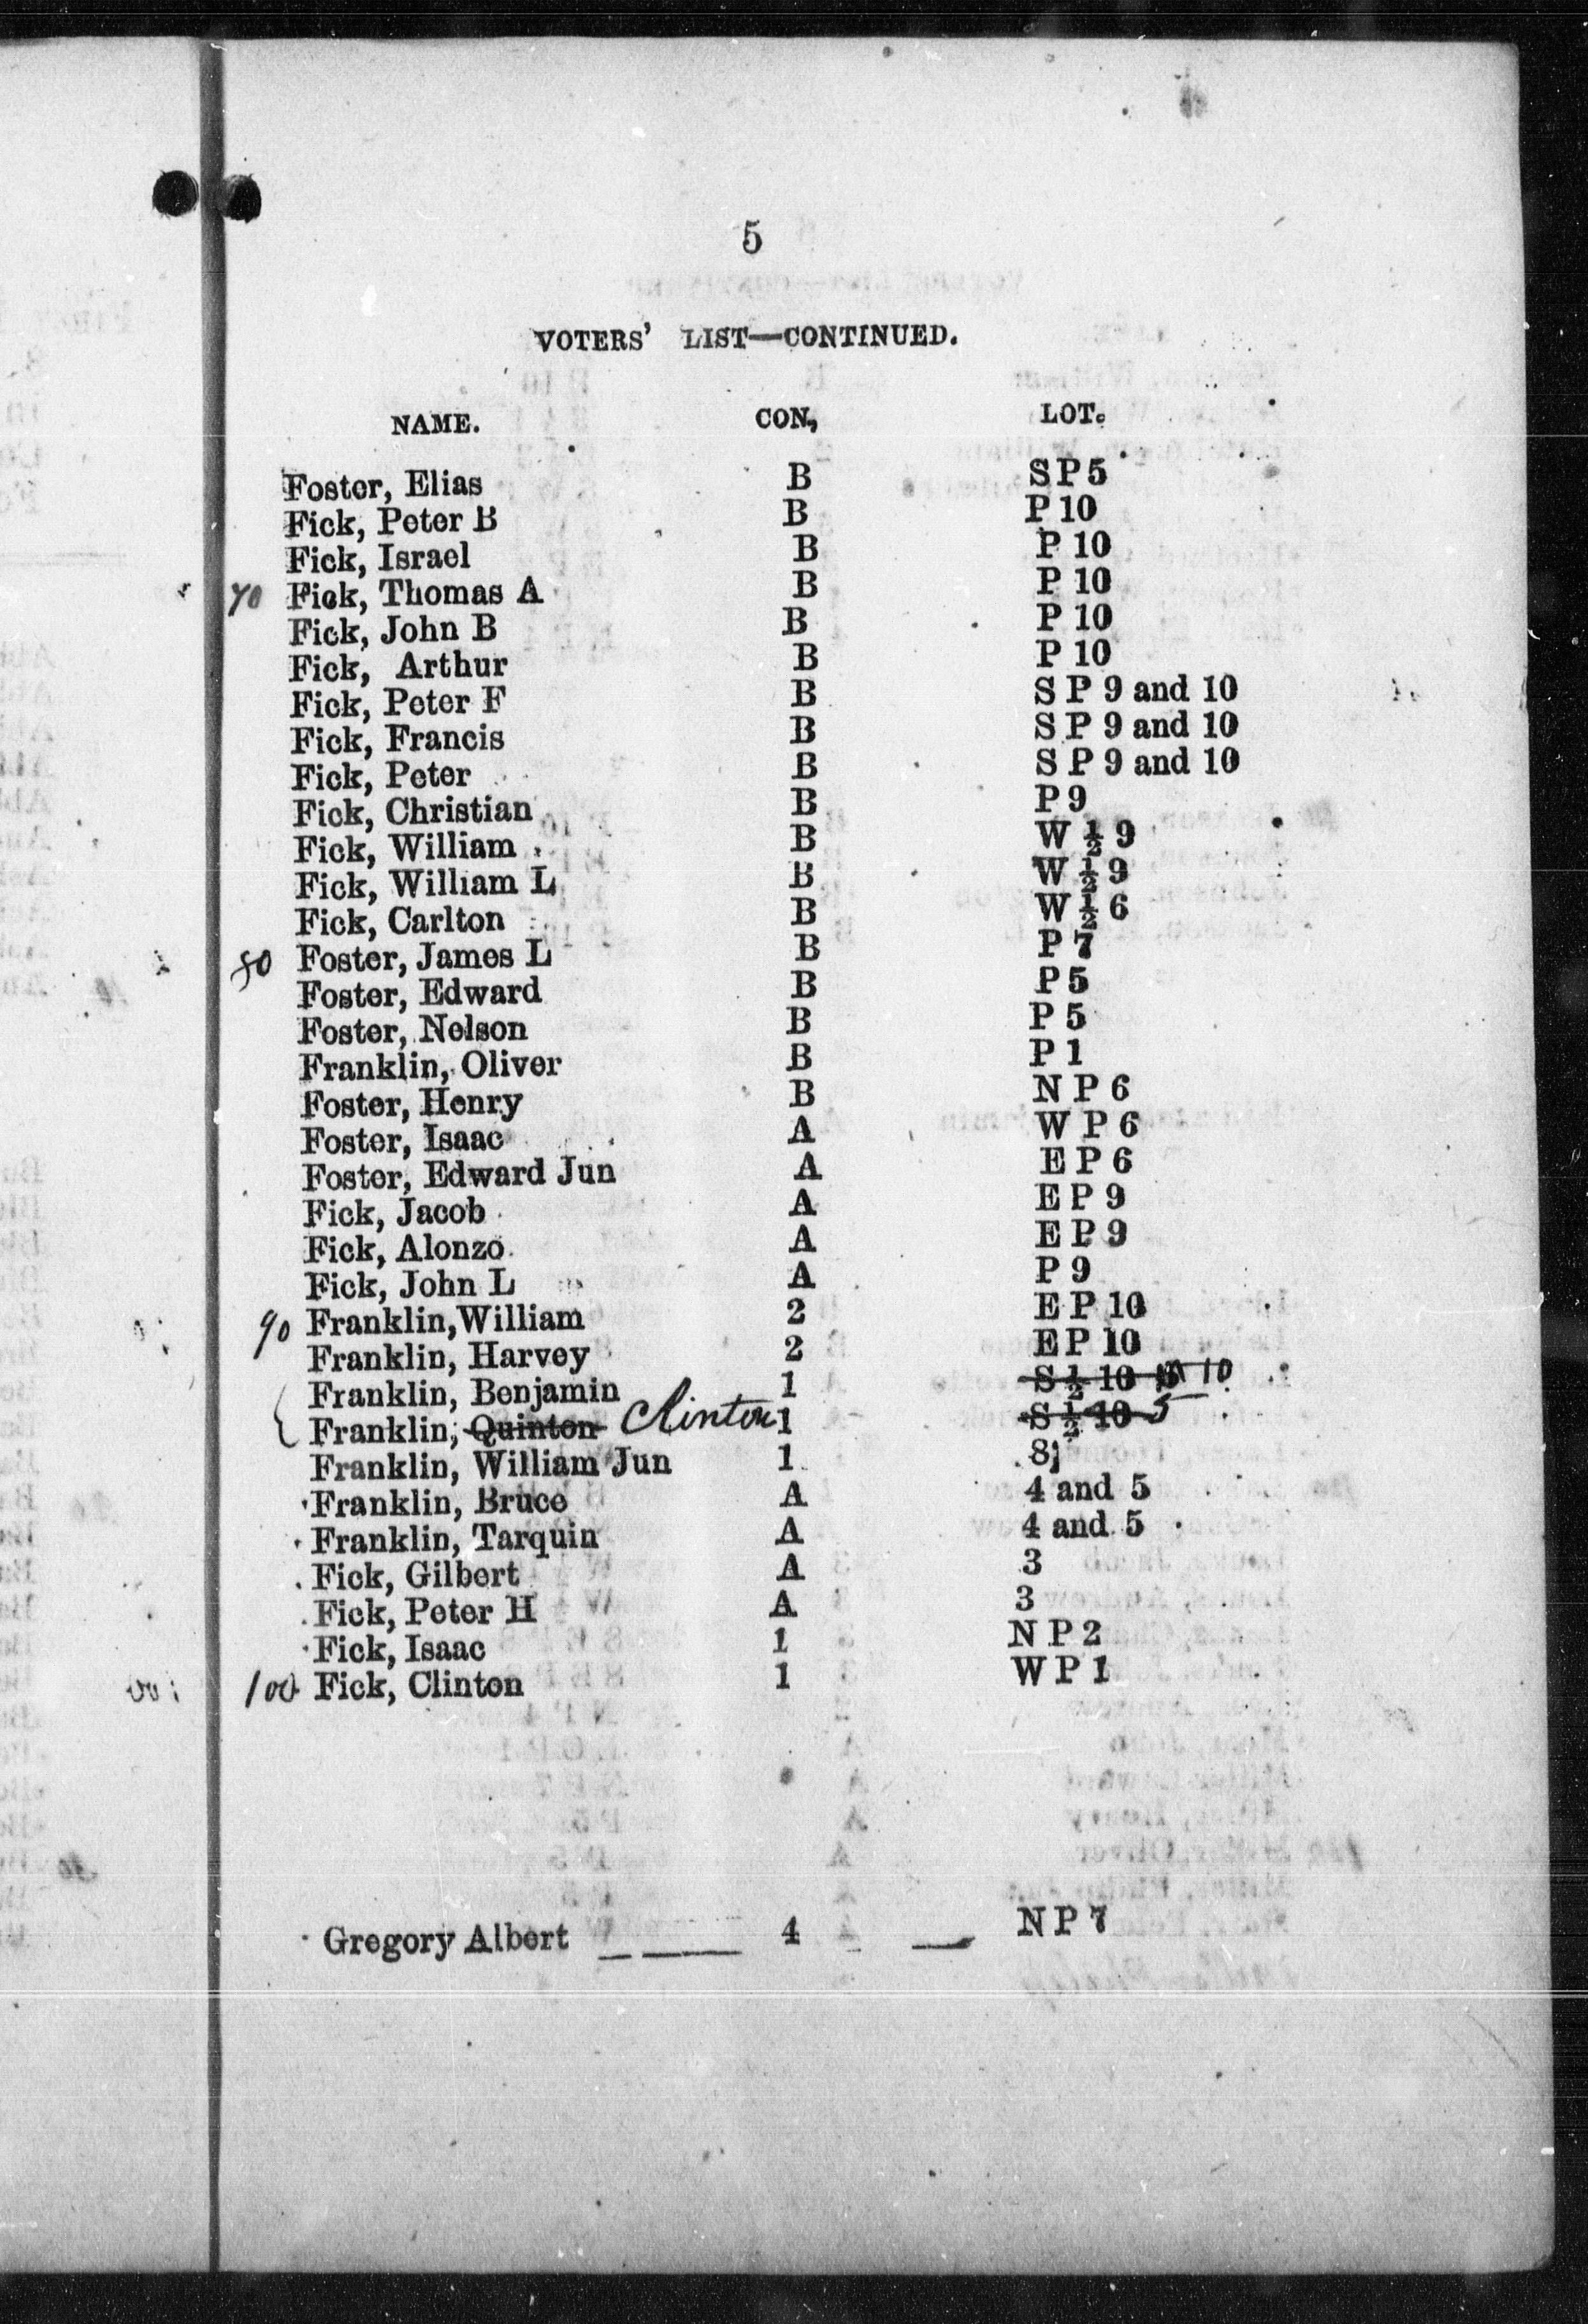 5
VOTERS' LIST—CONTINUED.
NAME. CON, LOT.
Foster, Elias B S P 5
Fick, Peter B B P 10
Fick, Israel B P 10
70 Fick, Thomas A B P 10
Fick, John B B P 10
Fick, Arthur B P 10
Fick, Peter F B S P 9 and 10
Fick, Francis B S P 9 and 10
Fick, Peter B S P 9 and 10
Fick, Christian B P 9
Fick, William B W ½ 9
Fick, William L B W ½ 9
Fick, Carlton B W ½ 6
80 Foster, James L B P 7
Foster, Edward B P 5
Foster, Nelson B P 5
Franklin, Oliver B P 1
Foster, Henry B N P 6
Foster, Isaac A W P 6
Foster, Edward Jun A E P 6
Fick, Jacob A E P 9
Fick, Alonzo A E P 9
Fick, John L A P 9
90 Franklin, William 2 E P 10
Franklin, Harvey 2 E P 10
Franklin, Benjamin 1 S ½ 10 10
Franklin, Quinton Clinton 1 S ½ 10 5
Franklin, William Jun 1 8
Franklin, Bruce A 4 and 5
Franklin, Tarquin A 4 and 5
Fick, Gilbert A 3
Fick, Peter H A 3
Fick, Isaac 1 N P 2
100 Fick, Clinton 1 W P 1
Gregory Albert 4 N P 7